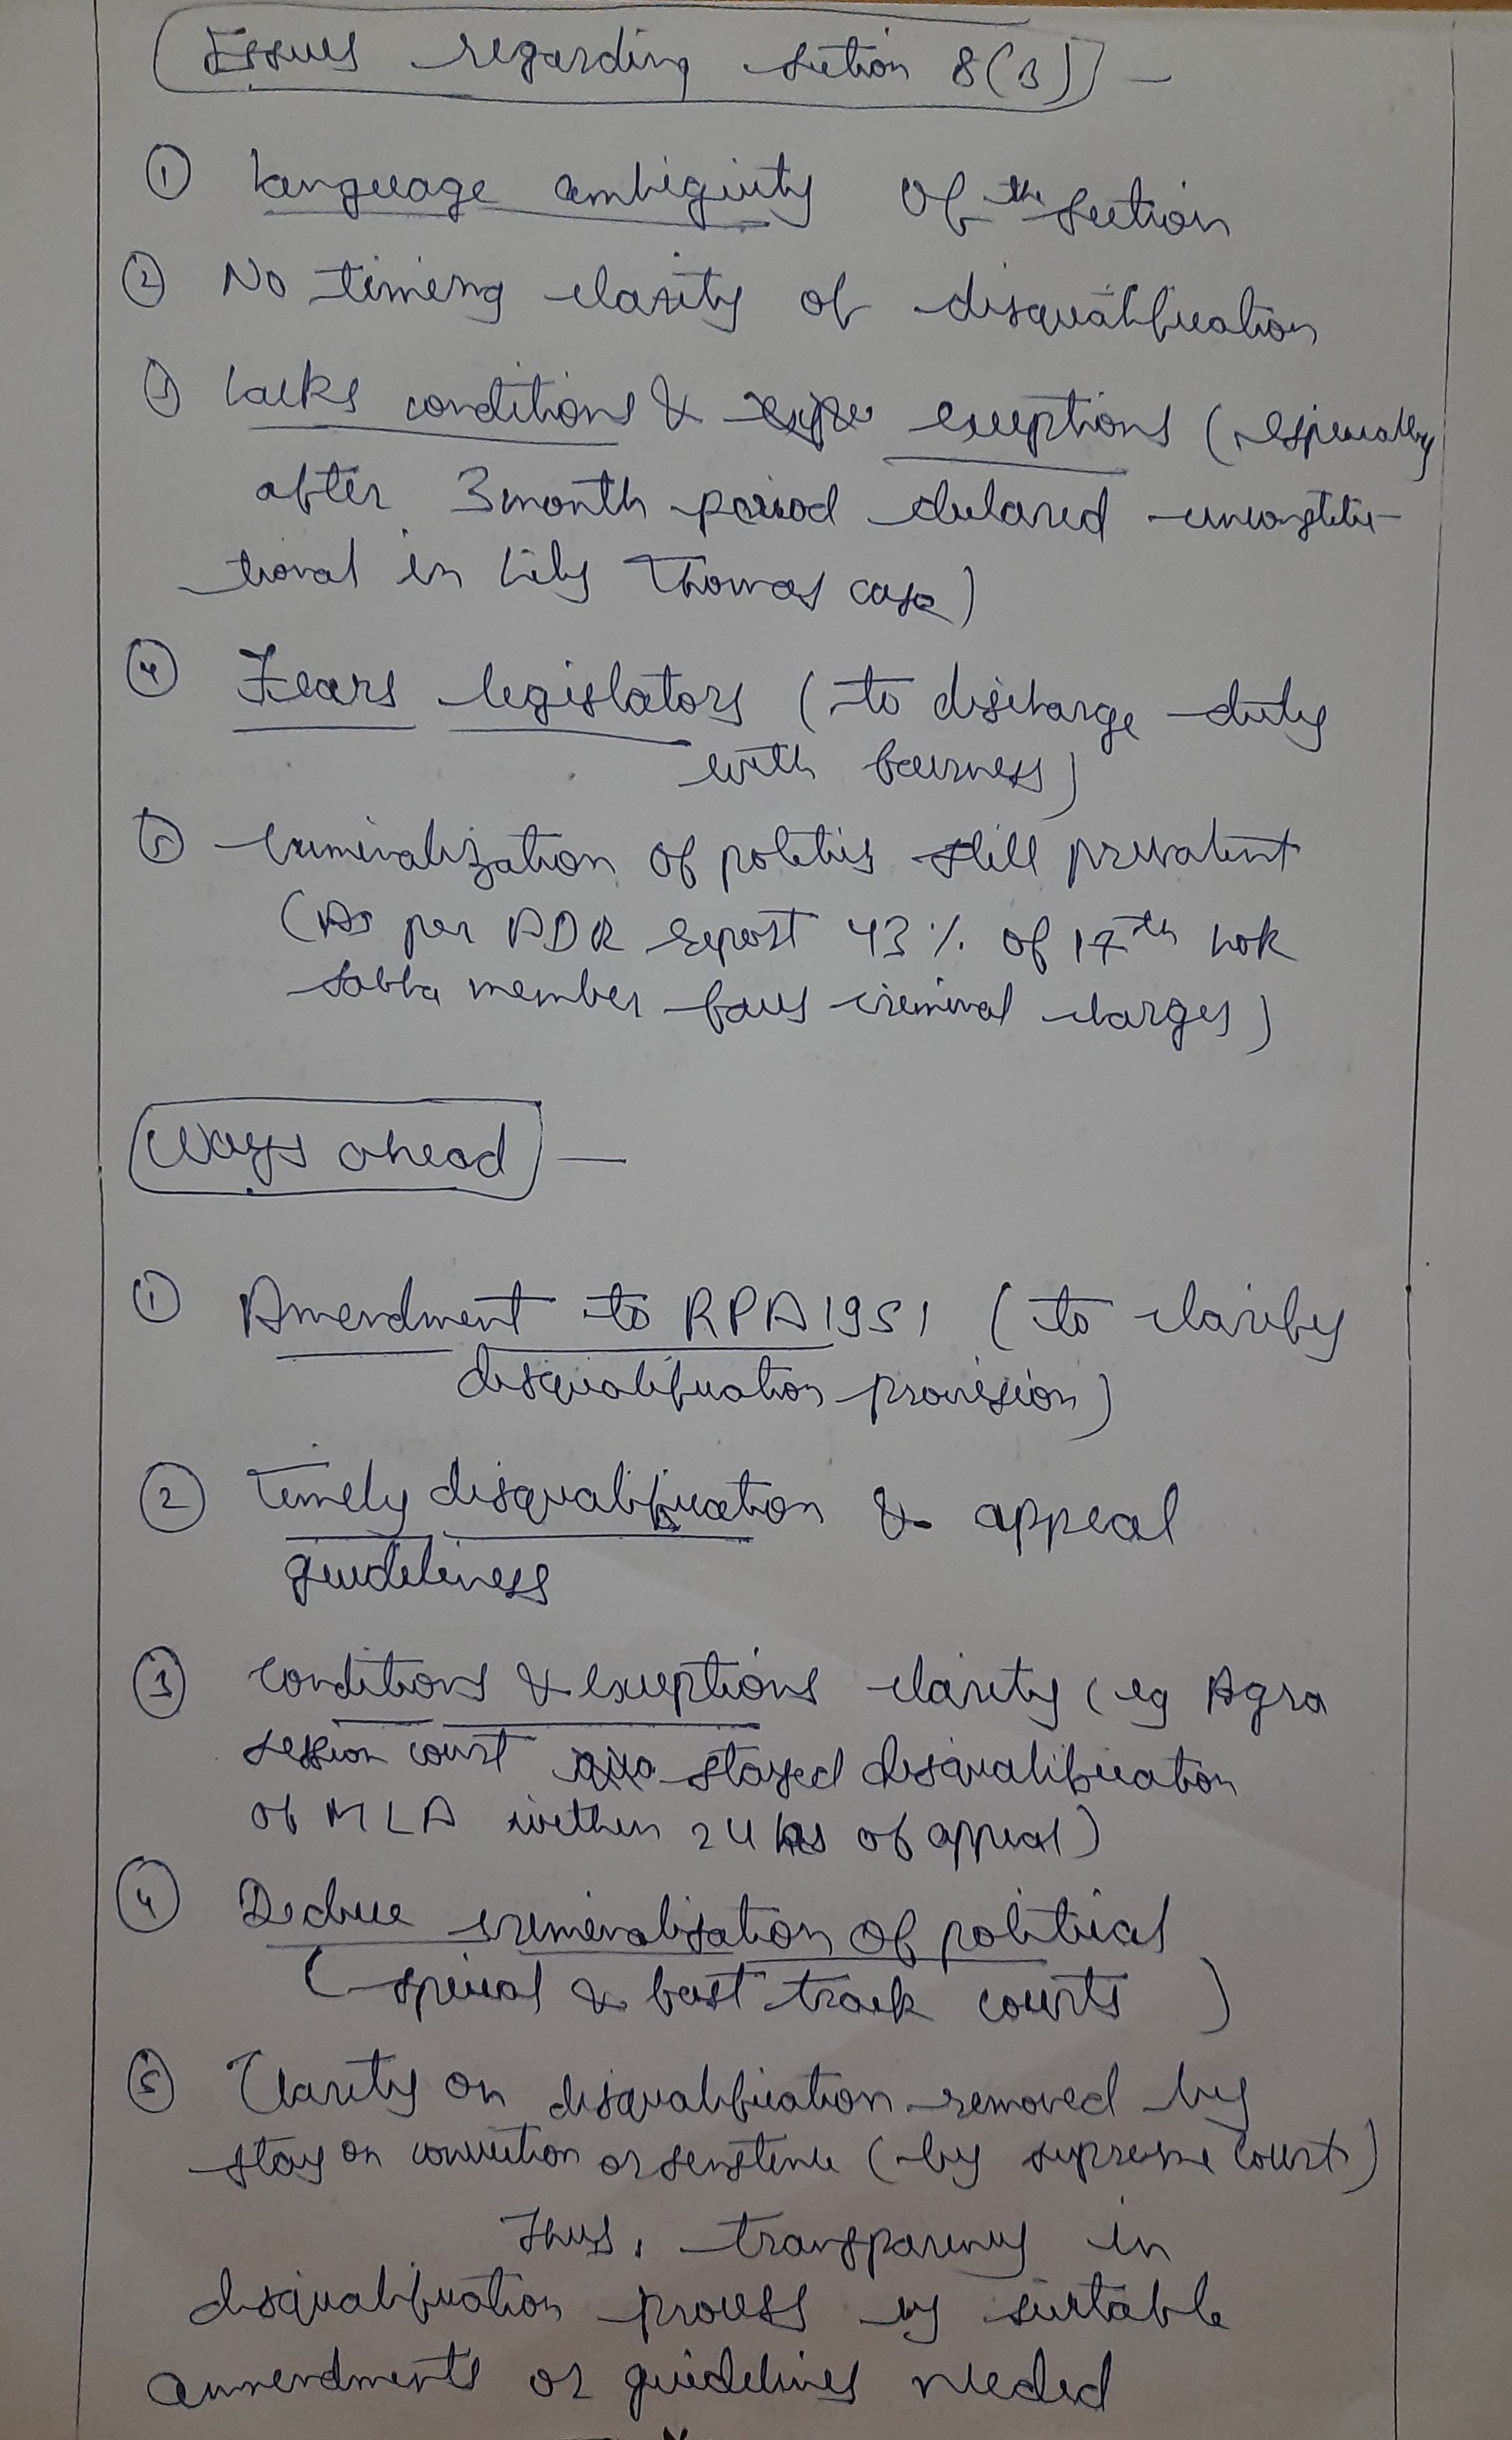 Issues regarding section 8(3) -
① Language ambiguity of the section
② No timing clarity of disqualification
③ Lacks conditions & exceptions (especially
after 3 month period declared unconstitu-
tional in Lily Thomas case)
④ Fears legislators (to discharge duty
with fairness)
⑤ Criminalization of politics still prevalent
(As per ADR report 43% of 17th Lok
Sabha member faces criminal charges)
Ways ahead -
① Amendment to RPA 1951 (to clarify
disqualification provision)
② Timely disqualification & appeal
guideliness
③ Conditions & exceptions clarity (eg Agra
session court stayed disqualification
of MLA within 24 hrs of appeal)
④ Reduce criminalisation of political
(special & fast track courts)
⑤ Clarity on disqualification removed by
stay on conviction or sentence (by supreme court)
Thus, transparency in
disqualification process by suitable
ammendments or guidelines needed